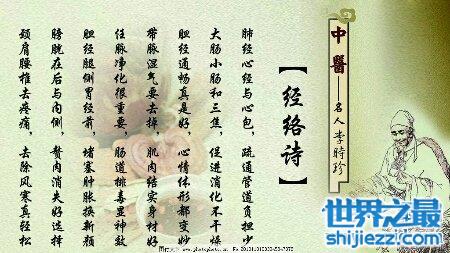 中醫——名人李時珍
【经络诗】
肺经心经与心包，疏通管道负担少
大肠小肠和三焦，促进消化不干燥
胆经通畅真是好，心情体形都变妙
带脉湿气要去掉，肌肉结实身材好
任脉净化很重要，肠道排毒显神效
胆经腿侧胃经前，堵塞肿胀换新颜
膀胱在后与内侧，赘肉消失好选择
颈肩腰椎去疼痛，去除风寒真轻松
世界之最
shijiezz.com